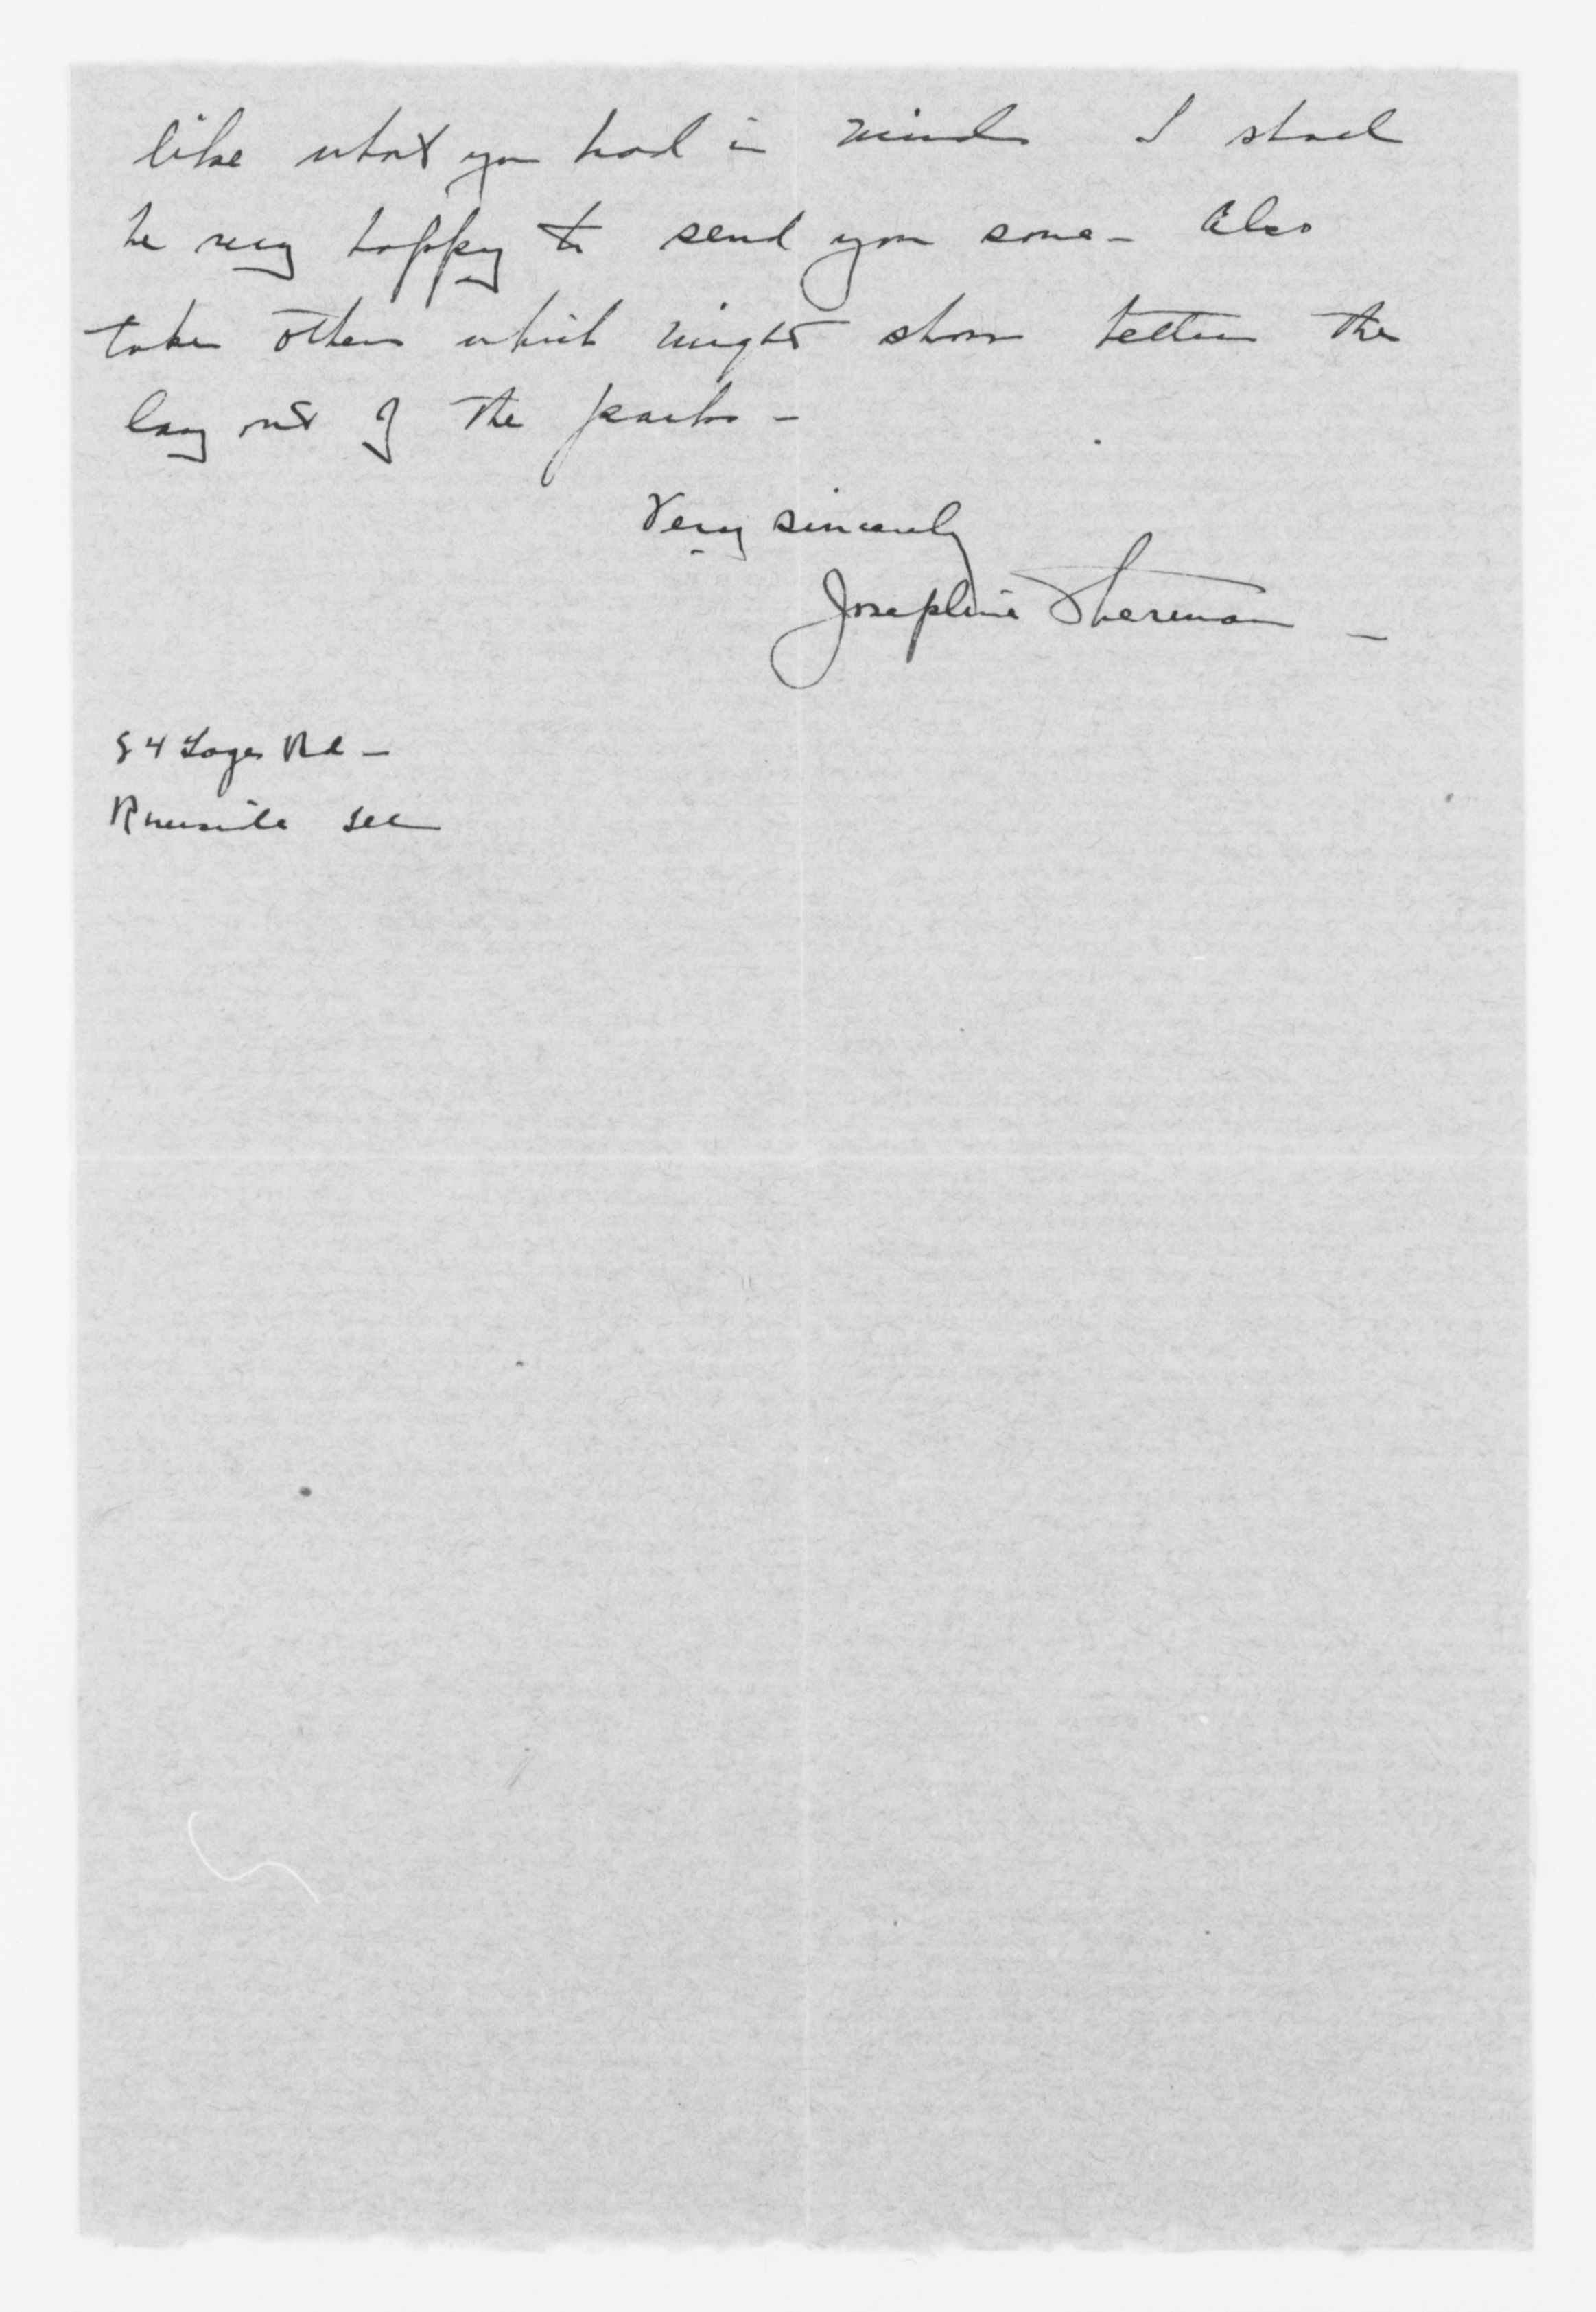 like what you had in mind I shall
be very happy to send you some - Also
take others which might show better the
lay out of the parks -
Very sincerely
Josephine Sherman -
Rd -
Riverside Ill